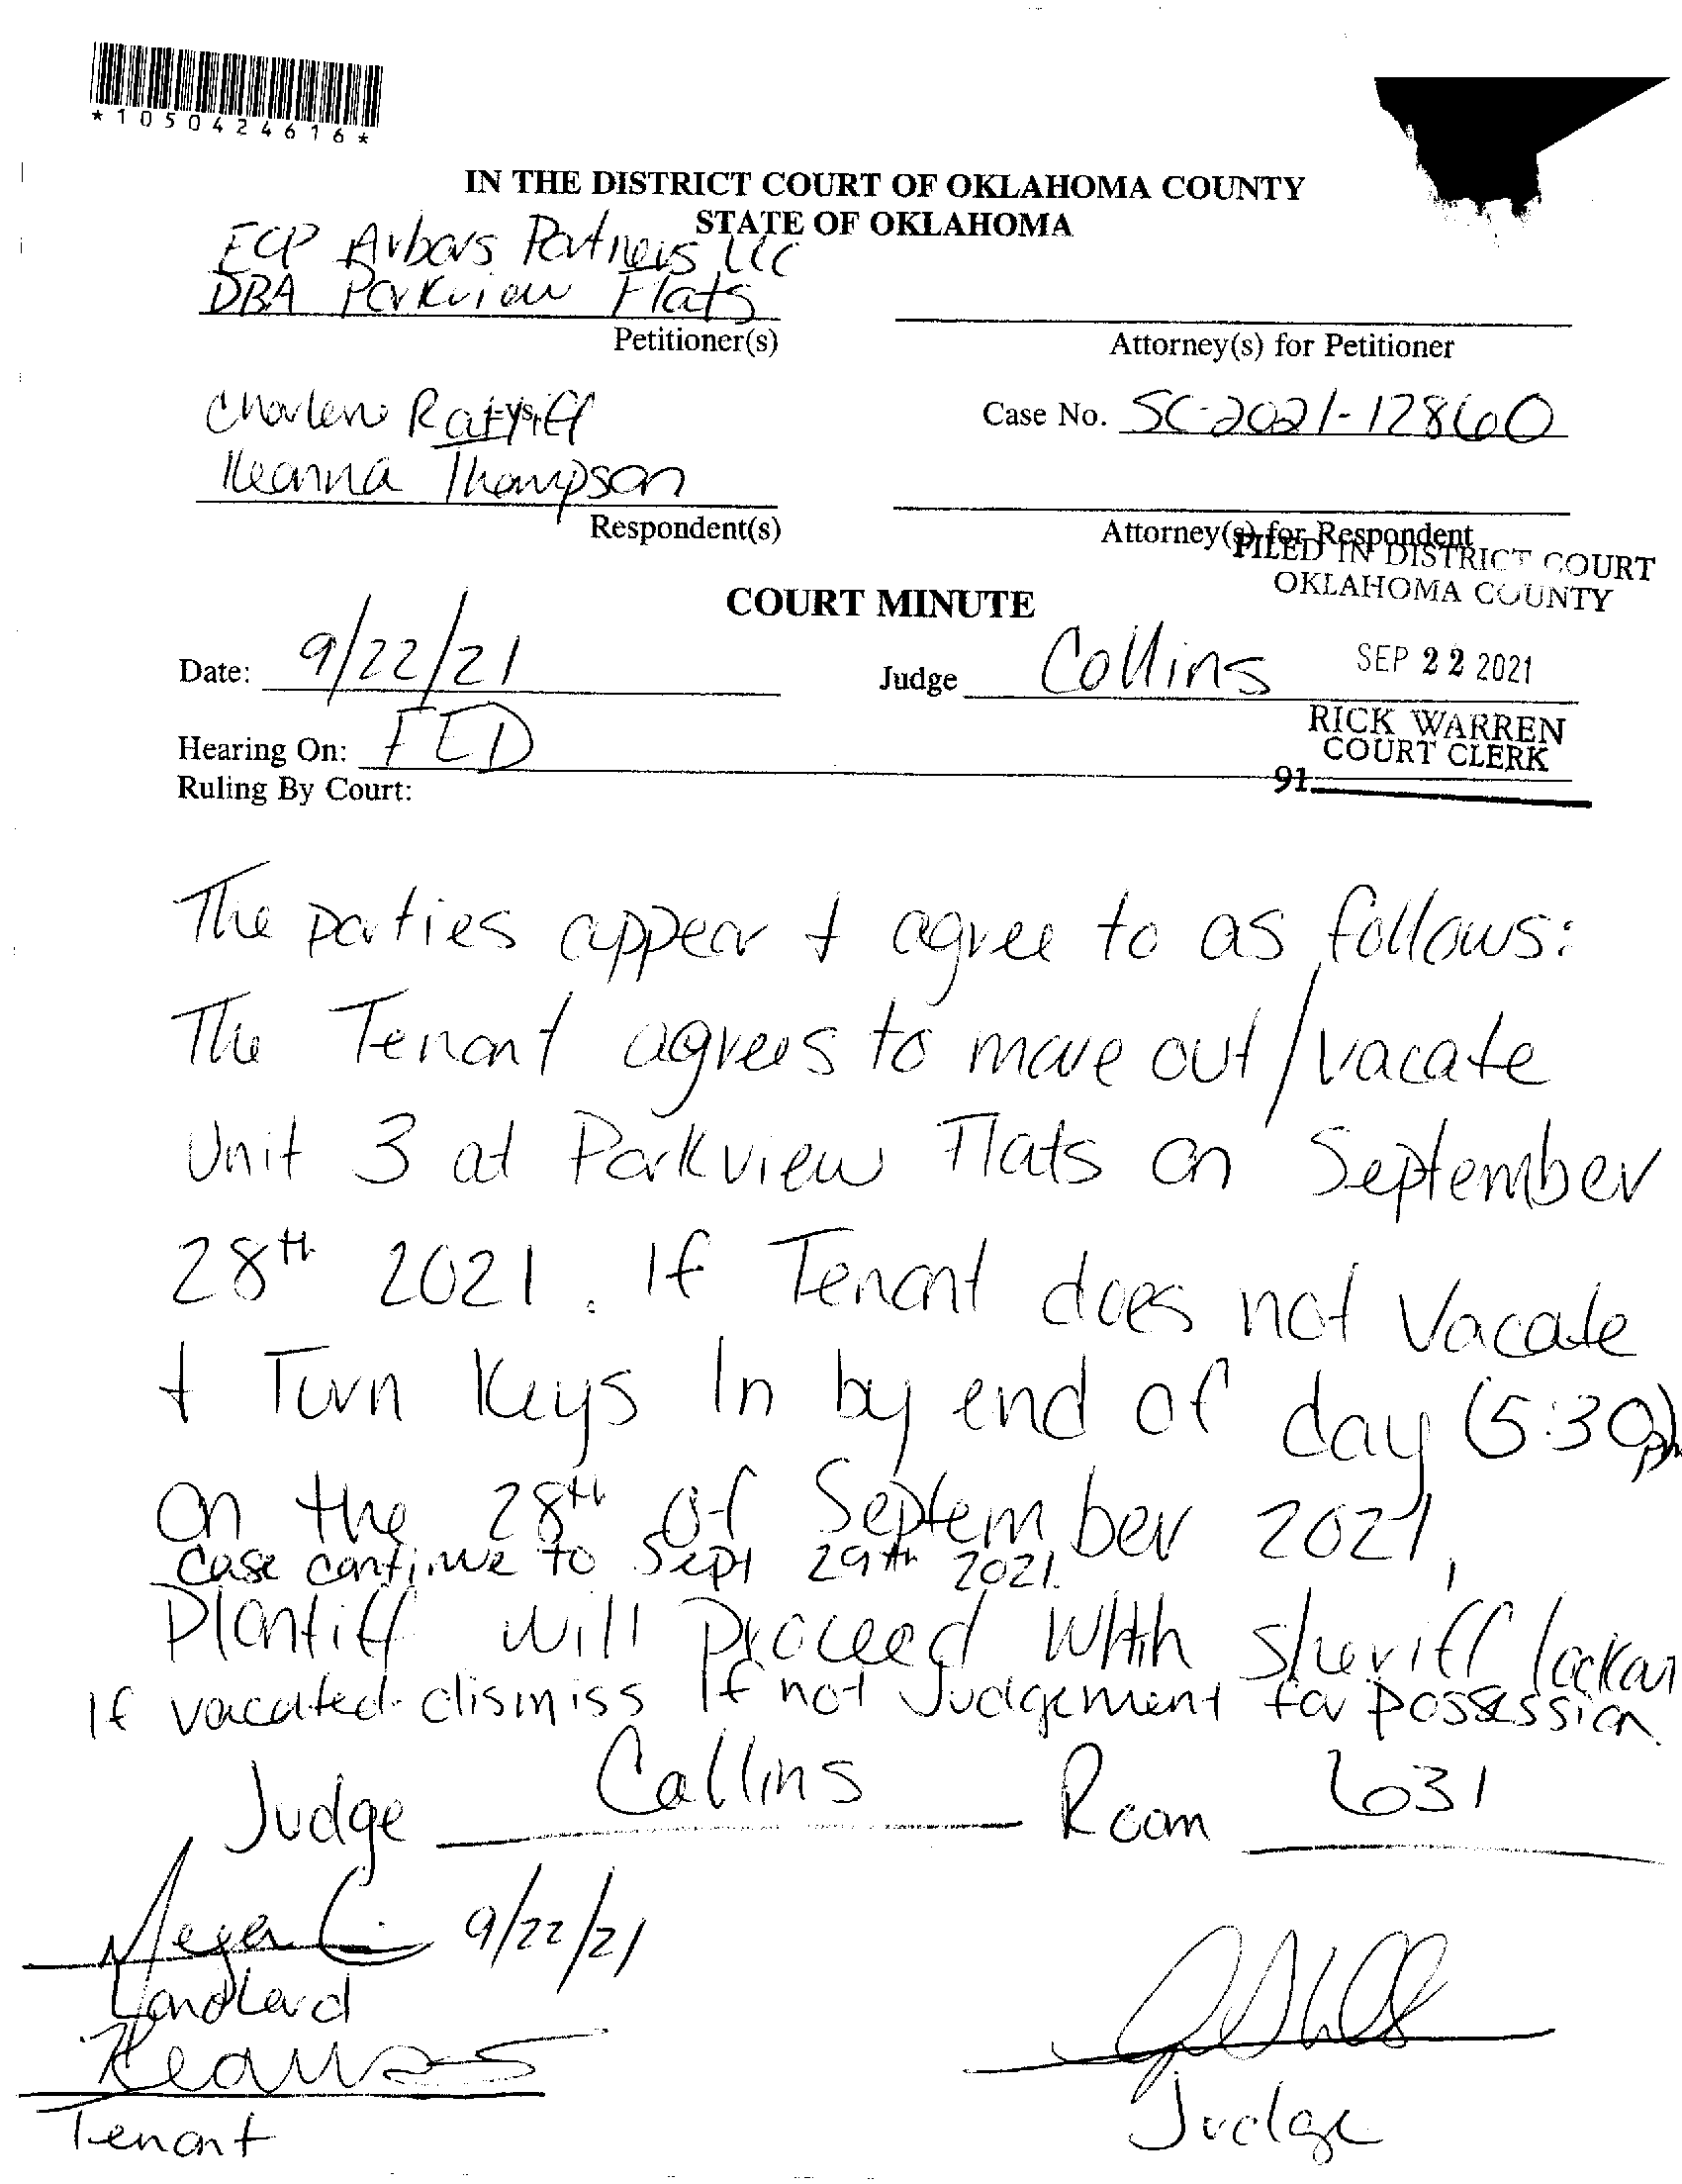 *1050424616*
IN THE DISTRICT COURT OF OKLAHOMA COUNTY
STATE OF OKLAHOMA
ECP Arbors Partners LLC
DBA Parkview Flats
Petitioner(s)
Attorney(s) for Petitioner
Charlene Ratliff
vs.
Keanna Thompson
Respondent(s)
Case No. SC-2021-12860
Attorney(s) for Respondent
FILED IN DISTRICT COURT
OKLAHOMA COUNTY
COURT MINUTE
Date: 9/22/21
Judge Collins
SEP 22 2021
Hearing On: FED
RICK WARREN
COURT CLERK
91
Ruling By Court:
The parties appear + agree to as follows:
The Tenant agrees to move out/vacate
Unit 3 at Parkview Flats on September
28th 2021. If Tenant does not vacate
+ Turn Keys In by end of day (5:30pm)
on the 28th of September 2021,
case continue to Sept 29th 2021.
Plantiff will Proceed with sheriff lockout
If vacated dismiss If not Judgement for possession
Judge Collins Room 631
9/22/21
Landlord
Tenant
Judge